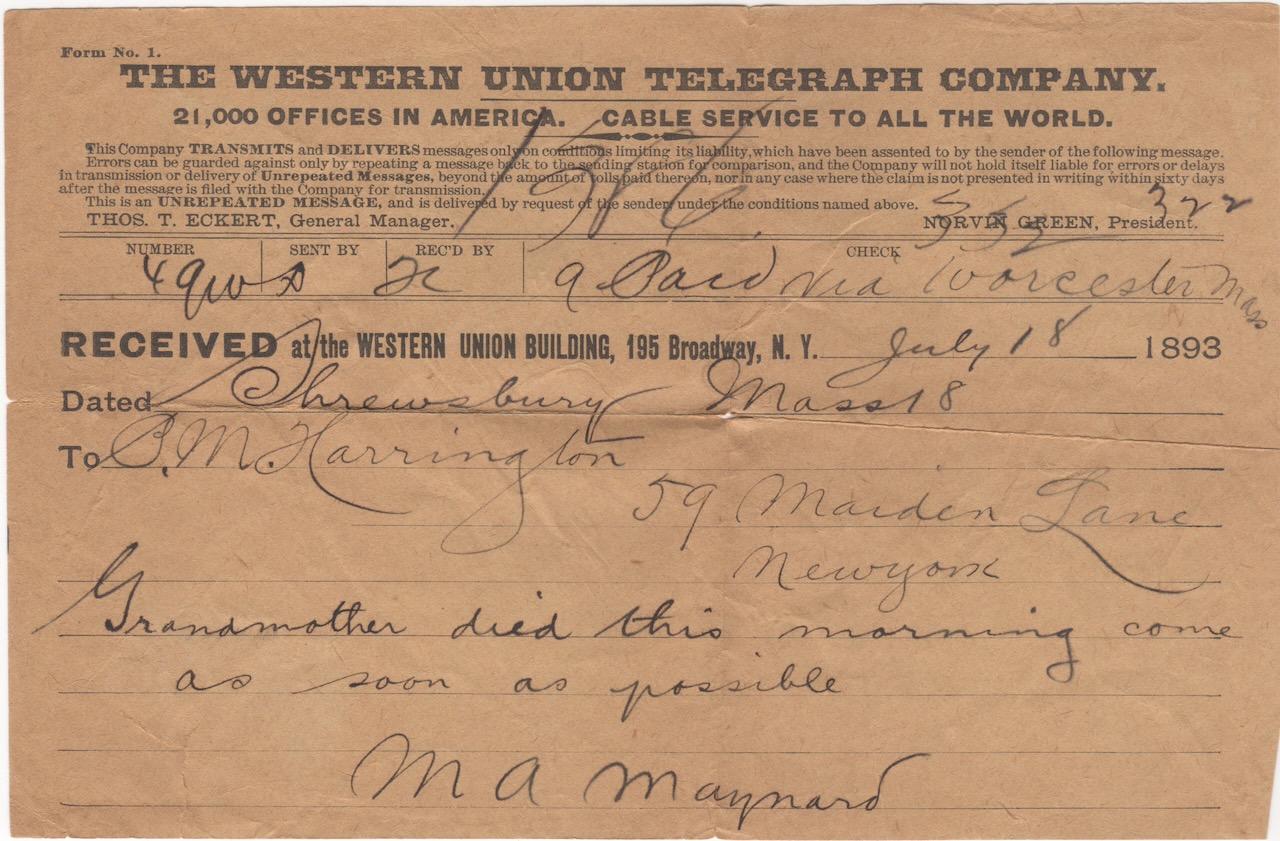 Form No. 1.
THE WESTERN UNION TELEGRAPH COMPANY.
21,000 OFFICES IN AMERICA. CABLE SERVICE TO ALL THE WORLD.
This Company TRANSMITS and DELIVERS messages only on conditions limiting its liability, which have been assented to by the sender of the following message.
Errors can be guarded against only by repeating a message back to the sending station for comparison, and the Company will not hold itself liable for errors or delays
in transmission or delivery of Unrepeated Messages, beyond the amount of tolls paid thereon, nor in any case where the claim is not presented in writing within sixty days
after the message is filed with the Company for transmission.
This is an UNREPEATED MESSAGE, and is delivered by request of the sender under the conditions named above.
322
THOS. T. ECKERT, General Manager. NORVIN GREEN, President.
NUMBER SENT BY REC'D BY CHECK
9 Paid via Worcester Mass
RECEIVED at the WESTERN UNION BUILDING, 195 Broadway, N. Y. July 18 1893
Dated Shrewsbury Mass 18
To P. M. Harrington
59 Maiden Lane
Newyork
Grandmother died this morning come
as soon as possible
M A Maynard